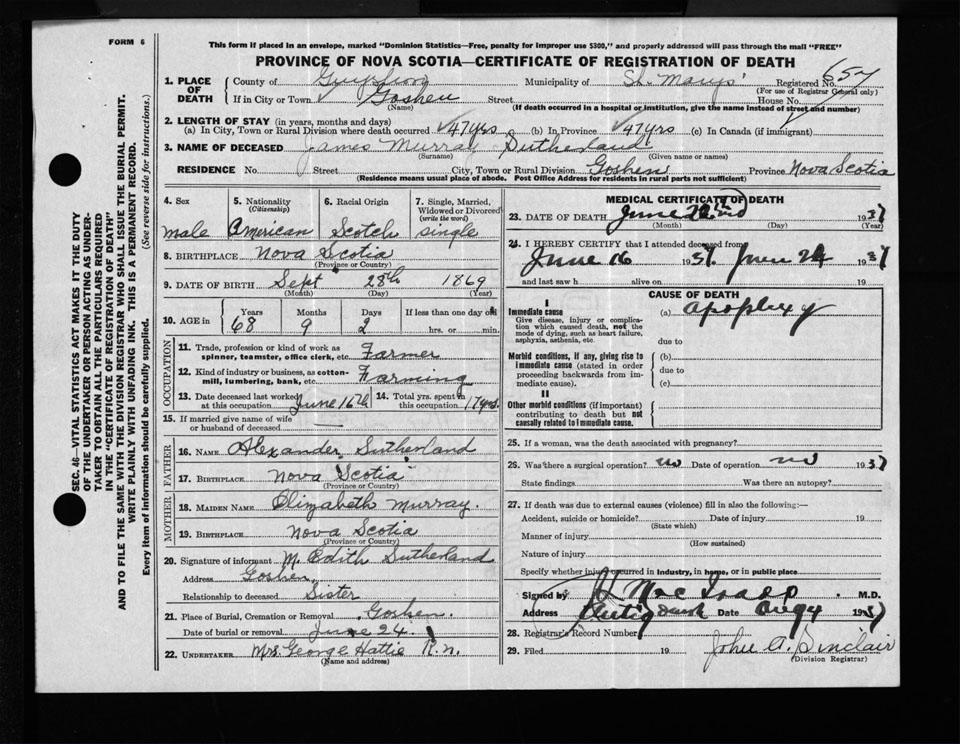 FORM 6
This form if placed in an envelope, marked "Dominion Statistics—Free, penalty for improper use $300," and properly addressed will pass through the mail "FREE"
PROVINCE OF NOVA SCOTIA—CERTIFICATE OF REGISTRATION OF DEATH
1. PLACE OF DEATH County of Municipality of St. Marys' Registered No. 657
(For use of Registrar General only)
If in City or Town Goshen Street House No.
(Name) (If death occurred in a hospital or institution, give the name instead of street and number)
2. LENGTH OF STAY (in years, months and days)
(a) In City, Town or Rural Division where death occurred 47 yrs (b) In Province 47 yrs (c) In Canada (if immigrant)
3. NAME OF DECEASED James Murray Sutherland
(Surname) (Given name or names)
RESIDENCE No. Street City, Town or Rural Division Goshen Province Nova Scotia
(Residence means usual place of abode. Post Office Address for residents in rural parts not sufficient)
4. Sex 5. Nationality (Citizenship) 6. Racial Origin 7. Single, Married, Widowed or Divorced (write the word)
male American Scotch single
8. BIRTHPLACE Nova Scotia
(Province or Country)
9. DATE OF BIRTH Sept 28th 1869
(Month) (Day) (Year)
10. AGE in Years Months Days If less than one day old
68 9 2 hrs. or min.
OCCUPATION
11. Trade, profession or kind of work as spinner, teamster, office clerk, etc. Farmer
12. Kind of industry or business, as cotton-mill, lumbering, bank, etc. Farming
13. Date deceased last worked at this occupation June 16th 14. Total yrs. spent in this occupation 17 yrs.
15. If married give name of wife or husband of deceased —
FATHER
16. NAME Alexander Sutherland
17. BIRTHPLACE Nova Scotia
(Province or Country)
MOTHER
18. MAIDEN NAME Elizabeth Murray.
19. BIRTHPLACE Nova Scotia
(Province or Country)
20. Signature of informant M. Edith Sutherland
Address Goshen,
Relationship to deceased Sister
21. Place of Burial, Cremation or Removal Goshen.
Date of burial or removal June 24.
22. UNDERTAKER Mrs. George Hattie R.n.
(Name and address)
MEDICAL CERTIFICATE OF DEATH
23. DATE OF DEATH June 22nd 1937
(Month) (Day) (Year)
24. I HEREBY CERTIFY that I attended deceased from
June 16 1937. June 24 1937
and last saw h alive on 19
CAUSE OF DEATH
I
Immediate cause (a) apoplexy
Give disease, injury or complication which caused death, not the mode of dying, such as heart failure, asphyxia, asthenia, etc.
due to
Morbid conditions, if any, giving rise to immediate cause (stated in order proceeding backwards from immediate cause).
(b)
due to
(c)
II
Other morbid conditions (if important) contributing to death but not causally related to immediate cause.
25. If a woman, was the death associated with pregnancy?
26. Was there a surgical operation? no Date of operation no 1937
State findings Was there an autopsy?
27. If death was due to external causes (violence) fill in also the following:—
Accident, suicide or homicide? Date of injury 19
(State which)
Manner of injury
(How sustained)
Nature of injury
Specify whether injury occurred in Industry, in home, or in public place
Signed by M.D.
Address Date 1937
28. Registrar's Record Number
29. Filed 19 John A. Sinclair
(Division Registrar)
SEC. 46—VITAL STATISTICS ACT MAKES IT THE DUTY
OF THE UNDERTAKER OR PERSON ACTING AS UNDERTAKER TO OBTAIN ALL THE PARTICULARS REQUIRED
IN THE "CERTIFICATE OF REGISTRATION OF DEATH"
AND TO FILE THE SAME WITH THE DIVISION REGISTRAR WHO SHALL ISSUE THE BURIAL PERMIT.
WRITE PLAINLY WITH UNFADING INK. THIS IS A PERMANENT RECORD.
Every item of information should be carefully supplied. (See reverse side for instructions.)